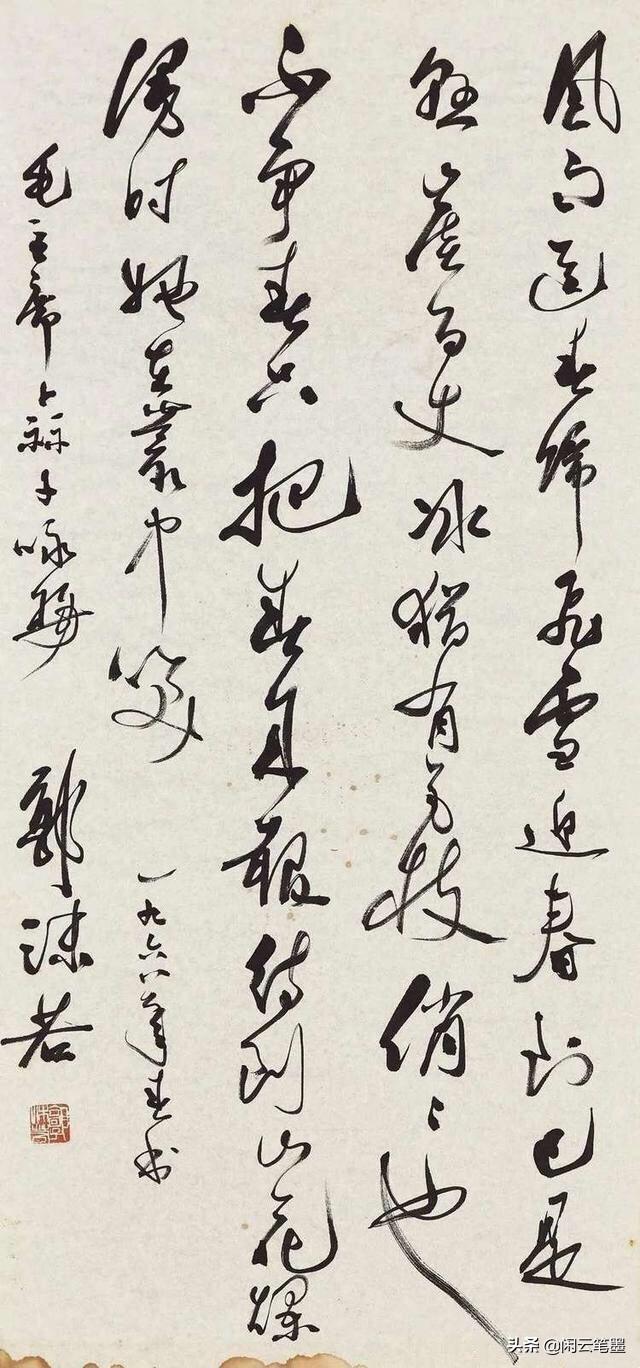 風雨送春歸飛雪迎春到已是
懸崖百丈冰猶有花枝俏〻也
不爭春只把春來報待到山花爛
漫時她在叢中笑 一九六八年春書
毛主席卜算子咏梅 郭沫若
郭沫若
头条 @闲云笔墨